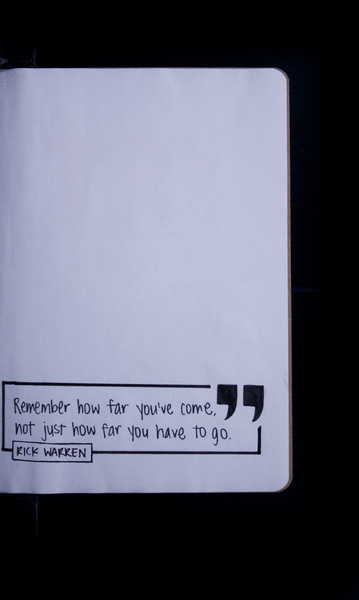 Remember how far you've come,
not just how far you have to go.
RICK WARREN